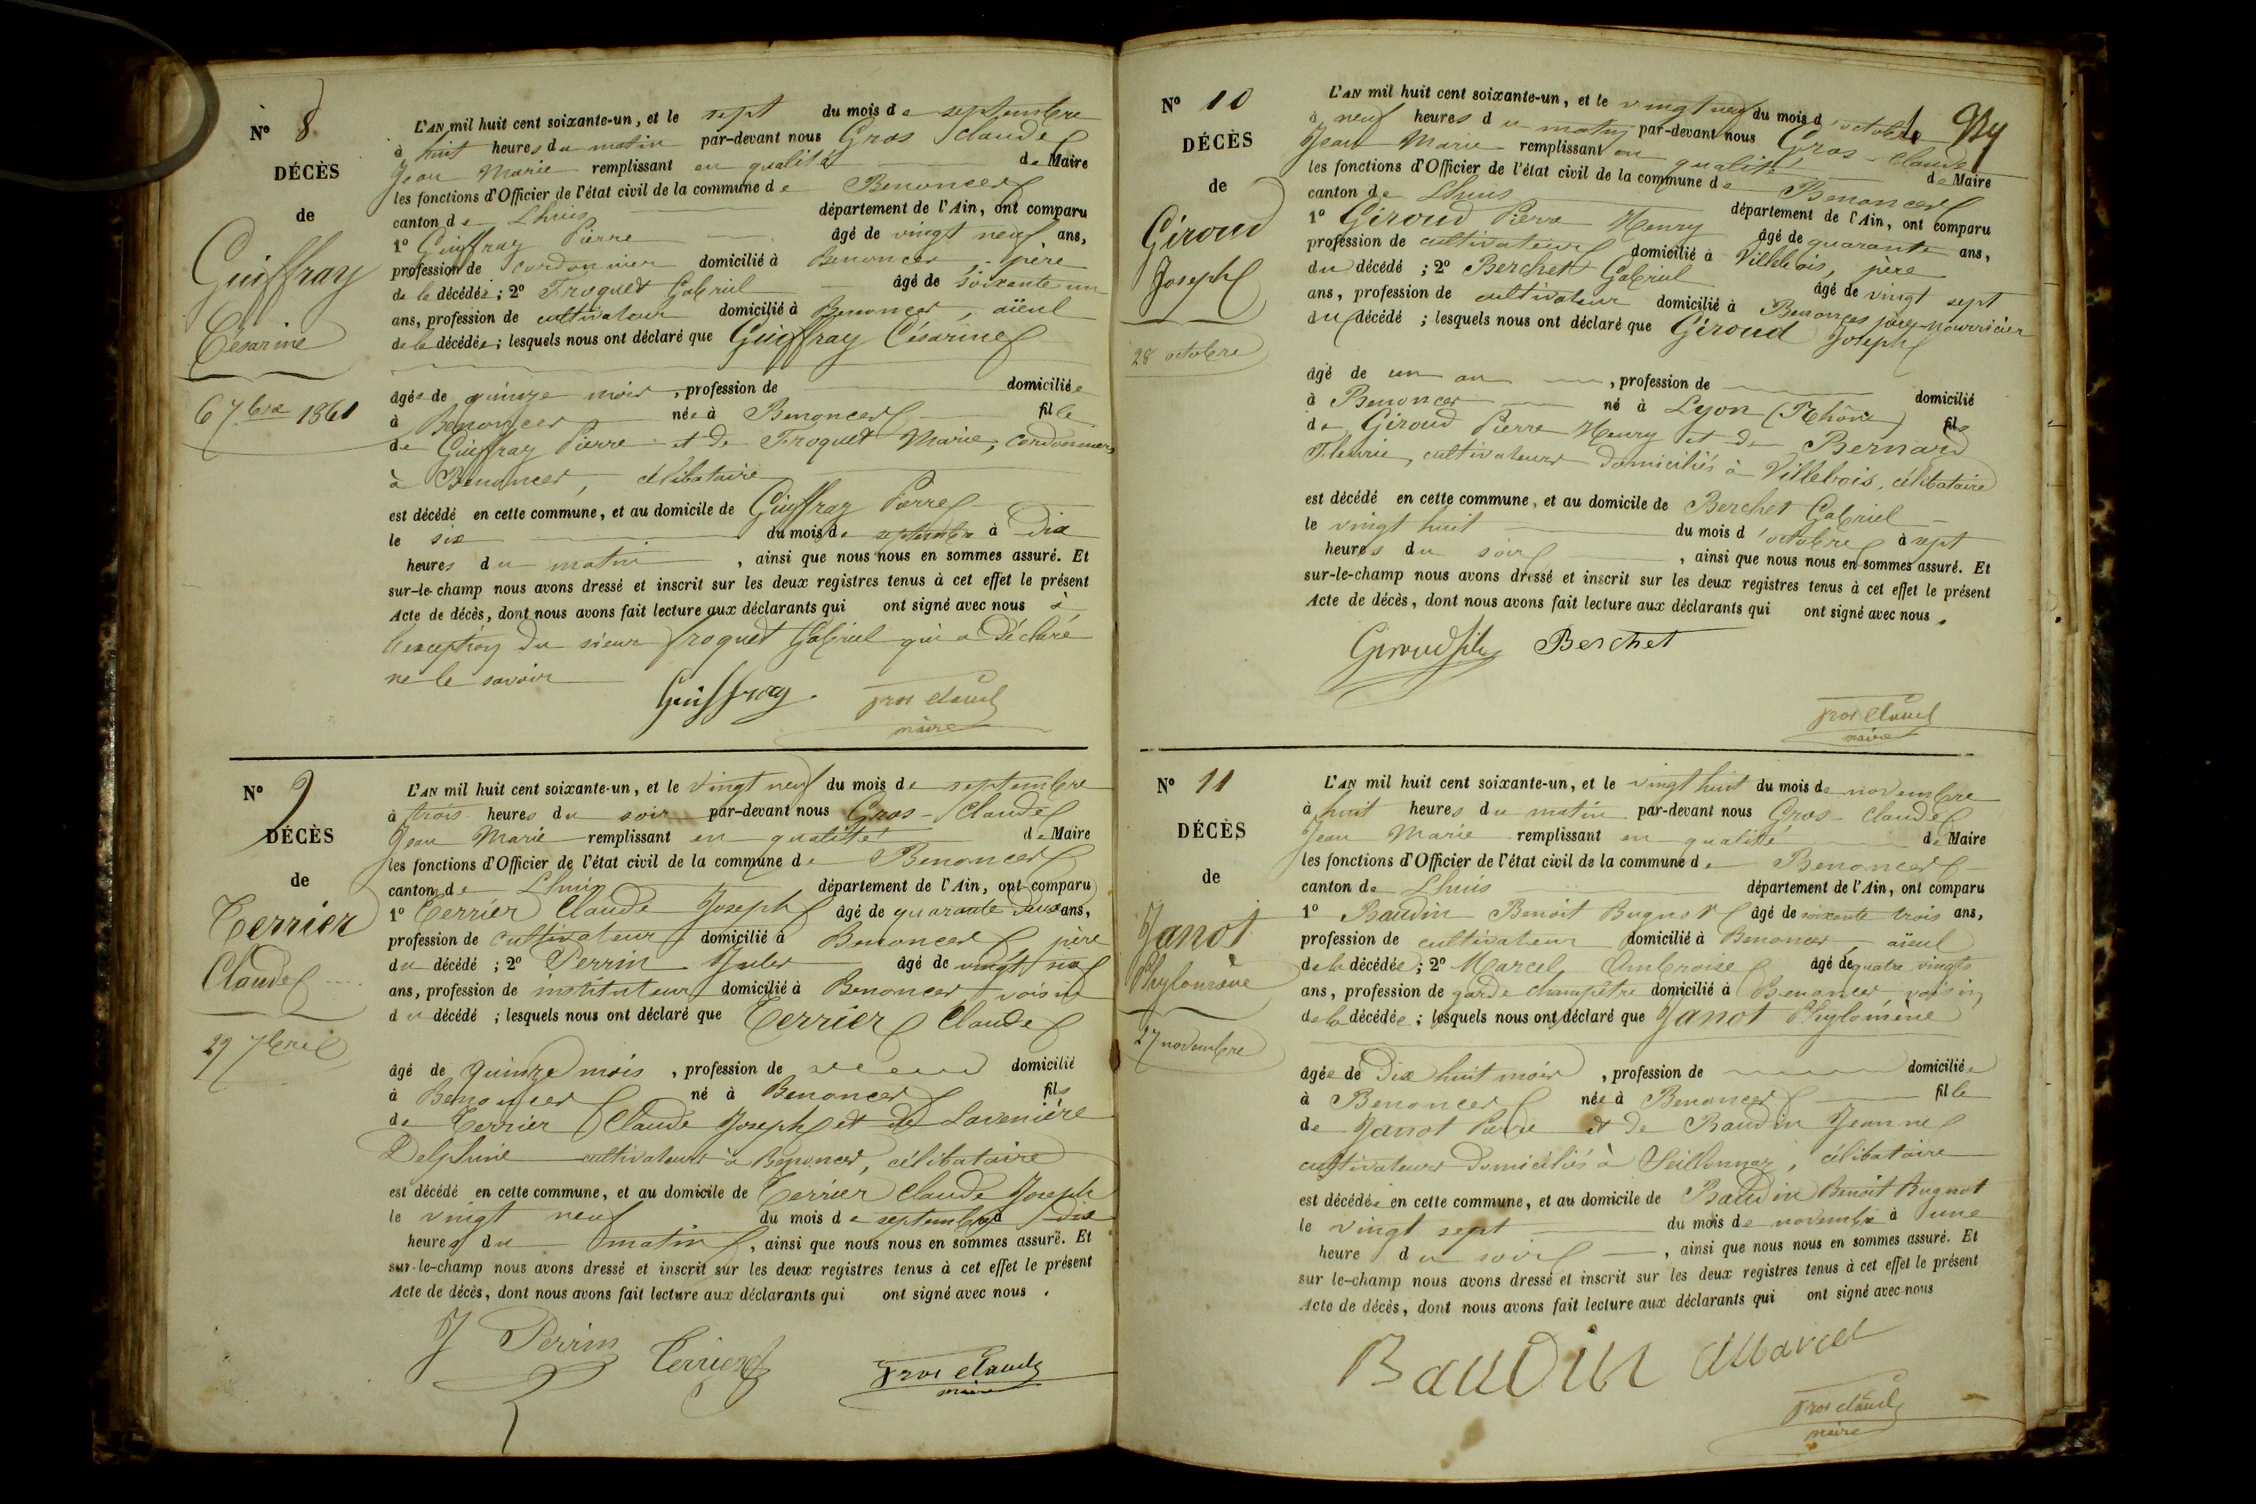 N° 8
DÉCÈS
de
Guiffray
Césarine
6 7bre 1861
L'AN mil huit cent soixante-un, et le sept du mois de septembre
à huit heures du matin par-devant nous Gros Claude
Jean Marie remplissant en qualité de Maire
les fonctions d'Officier de l'état civil de la commune de Benonces
canton de Lhuis département de l'Ain, ont comparu
1° Guiffray Pierre âgé de vingt neuf ans,
profession de cordonnier domicilié à Benonces, père
de la décédée ; 2° Froquet Gabriel âgé de soixante un
ans, profession de cultivateur domicilié à Benonces, aïeul
de la décédée ; lesquels nous ont déclaré que Guiffray Césarine
âgée de quinze mois , profession de domiciliée
à Benonces née à Benonces fille
de Guiffray Pierre et de Froquet Marie, cordonniers
à Benonces, célibataire
est décédé en cette commune, et au domicile de Guiffray Pierre
le six du mois de septembre à dix
heures du matin , ainsi que nous nous en sommes assuré. Et
sur-le-champ nous avons dressé et inscrit sur les deux registres tenus à cet effet le présent
Acte de décès, dont nous avons fait lecture aux déclarants qui ont signé avec nous à
l'exception du sieur froquet Gabriel qui a déclaré
ne le savoir
Guiffray. gros claude
maire
N° 9
DÉCÈS
de
Terrier
Claude
29 7bre
L'AN mil huit cent soixante-un, et le vingt neuf du mois de septembre
à trois heures du soir par-devant nous Gros-Claude
Jean Marie remplissant en qualité de Maire
les fonctions d'Officier de l'état civil de la commune de Benonces
canton de Lhuis département de l'Ain, ont comparu
1° Terrier Claude Joseph âgé de quarante deux ans,
profession de cultivateur domicilié à Benonces, père
du décédé ; 2° Perrin Jules âgé de vingt
ans, profession de instituteur domicilié à Benonces voisin
du décédé ; lesquels nous ont déclaré que Terrier Claude
âgé de quinze mois , profession de domicilié
à Benonces né à Benonces fils
de Terrier Claude Joseph et de Lavenière
Delphine cultivateurs à Benonces, célibataire
est décédé en cette commune, et au domicile de Terrier Claude Joseph
le vingt neuf du mois de septembre à dix
heures du matin , ainsi que nous nous en sommes assuré. Et
sur-le-champ nous avons dressé et inscrit sur les deux registres tenus à cet effet le présent
Acte de décès, dont nous avons fait lecture aux déclarants qui ont signé avec nous .
J Perrin Terrier gros claude
maire
N° 10
DÉCÈS
de
Giroud
Joseph
28 octobre
L'AN mil huit cent soixante-un, et le vingt neuf du mois d'octobre
à neuf heures du matin par-devant nous Gros-Claude
Jean Marie remplissant en qualité de Maire
les fonctions d'Officier de l'état civil de la commune de Benonces
canton de Lhuis département de l'Ain, ont comparu
1° Giroud Pierre Henry âgé de quarante ans,
profession de cultivateur domicilié à Villebois, père
du décédé ; 2° Berchet Gabriel âgé de vingt sept
ans, profession de cultivateur domicilié à Benonces père-nourricier
du décédé ; lesquels nous ont déclaré que Giroud Joseph
âgé de un an , profession de domicilié
à Benonces né à Lyon (Rhône) fils
de Giroud Pierre Henry et de Bernard
Fleurie, cultivateurs domiciliés à Villebois, célibataire
est décédé en cette commune, et au domicile de Berchet Gabriel
le vingt huit du mois d'octobre à sept
heures du soir , ainsi que nous nous en sommes assuré. Et
sur-le-champ nous avons dressé et inscrit sur les deux registres tenus à cet effet le présent
Acte de décès, dont nous avons fait lecture aux déclarants qui ont signé avec nous .
Giroud fils Berchet
gros claude
maire
N° 11
DÉCÈS
de
Janot
Phylomène
27 novembre
L'AN mil huit cent soixante-un, et le vingt huit du mois de novembre
à huit heures du matin par-devant nous Gros-Claude
Jean Marie remplissant en qualité de Maire
les fonctions d'Officier de l'état civil de la commune de Benonces
canton de Lhuis département de l'Ain, ont comparu
1° Baudin Benoit Bugnot âgé de soixante trois ans,
profession de cultivateur domicilié à Benonces, aïeul
de la décédée ; 2° Marcel Ambroise âgé de quatre vingts
ans, profession de garde champêtre domicilié à Benonces voisin,
de la décédée ; lesquels nous ont déclaré que Janot Phylomène
âgée de dix huit mois , profession de domiciliée
à Benonces née à Benonces fille
de Janot Pierre et de Baudin Jeanne
cultivateurs domiciliés à Seillonnaz, célibataire
est décédée en cette commune, et au domicile de Baudin Benoit Bugnot
le vingt sept du mois de novembre à une
heure du soir , ainsi que nous nous en sommes assuré. Et
sur le-champ nous avons dressé et inscrit sur les deux registres tenus à cet effet le présent
Acte de décès, dont nous avons fait lecture aux déclarants qui ont signé avec nous
BAUDIN AMarcel
gros claude
maire